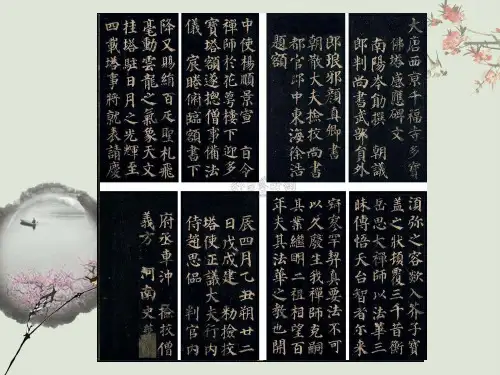 大唐西京千福寺多寶
佛塔感應碑文
南陽岑勛撰 朝議
郎判尚書武部員外
郎琅邪顏真卿書
朝散大夫檢校尚書
都官郎中東海徐浩
題額
中使楊順景宣 旨令
禪師於花萼樓下迎多
寶塔額遂摠僧事備法
儀 宸眷俯臨額書下
降又賜絹百疋聖札飛
毫動雲龍之氣象天文
挂塔駐日月之光輝至
四載塔事將就表請慶
須弥之容欻入芥子寶
盖之狀頓覆三千昔衡
岳思大禪師以法華三
昧傳悟天台智者尒來
寂寥罕契真要法不可
以久廢生我禪師克嗣
其業繼明二祖相望百
年夫其法華之教也開
辰四月乙丑朔廿二
日戊戌建 勅檢校
塔使正議大夫行内
侍趙思侃 判官内
府丞車沖 檢校僧
義方 河南史華